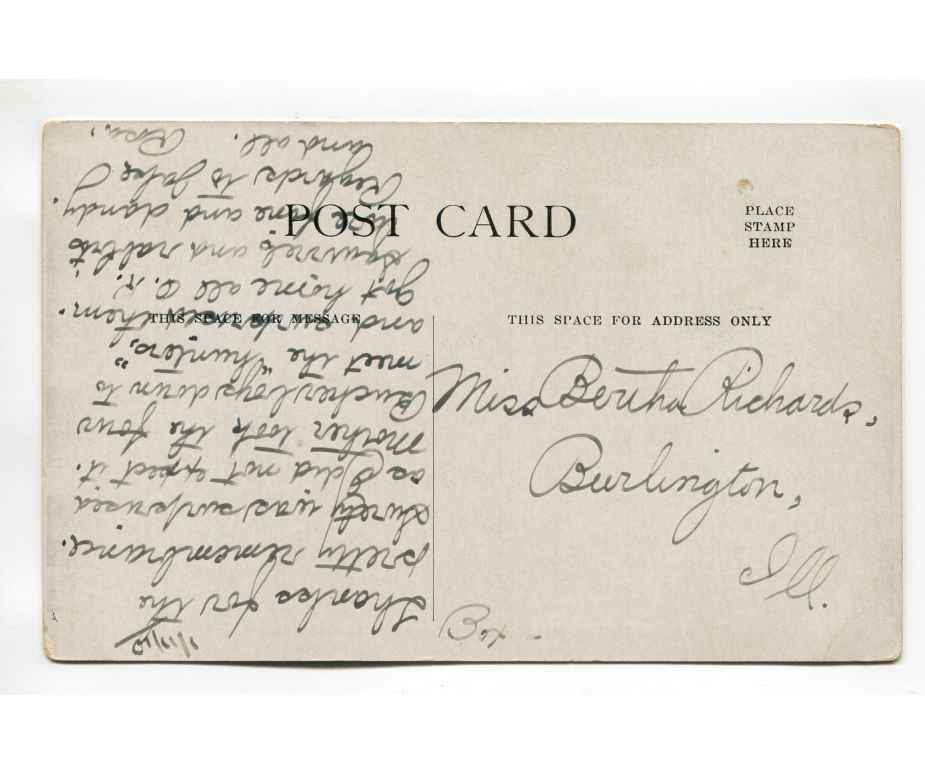 POST CARD
PLACE
STAMP
HERE
THIS SPACE FOR MESSAGE
THIS SPACE FOR ADDRESS ONLY
Miss Bertha Richards,
Burlington,
Ill.
Box -
1/17/10
Thanks for the
pretty remembrance.
Surely was surprised
as I did not expect it.
Mother took the four
boys down to
meet the "hunters,"
and surprised them.
Got home all O.K.
Squirrels and rabbits
are fine and dandy.
Regards to Jake
and all. Rose,